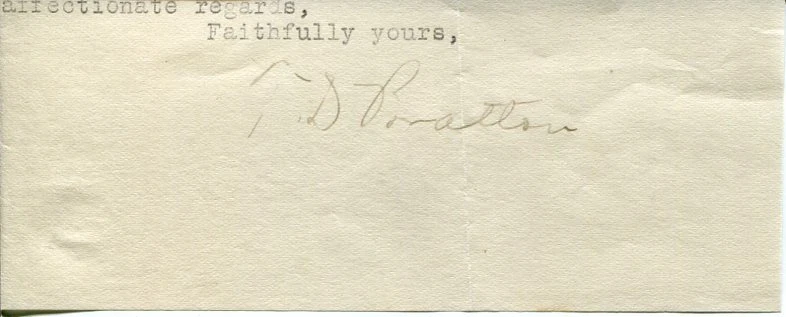 affectionate regards,
Faithfully yours,
T. D Bratton